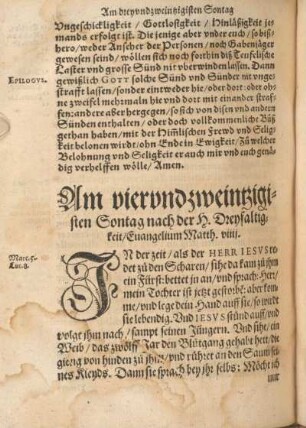 Am dreyundzweintzigisten Sontag
Vngeschickligkeit / Gottlosigkeit / Hinläßigkeit je-
mands erfolgt ist. Die jenige aber vnder euch / so biß-
hero / weder Anseher der Personen / noch Gabenjäger
gewesen seind / wöllen sich noch forthin diß Teufelische
Laster vnd grosse Sünd nit vberwinden lassen. Dann
EPILOGVS.
gewißlich GOTT solche Sünd vnd Sünder nit vnge-
strafft lassen / sonder eintweder hie / oder dort: oder oh-
ne zweifel mehrmaln hie vnd dort mit einander straf-
fen: andere aber hergegen / so sich von disen vnd andern
Sünden enthalten / oder doch vollkommenliche Büß
gethan haben / mit der Him̃lischen Frewd vnd Selig-
keit belonen wirdt / ohn Ende in Ewigkeit / Zu welcher
Belohnung vnd Seligkeit er auch mit vnd euch genä-
dig verhelffen wölle / Amen.
Am viervndzweintzigi-
sten Sontag nach der H. Dreyfaltig-
keit / Euangelium Matth. viiij.
Marc. 5.
Luc. 8.
IN der zeit / als der HERR IESVS re-
det zů den Scharen / sihe da kam zů jhm
ein Fürst: bettet jn an / vnd sprach: Herr /
mein Tochter ist jetz gestorbẽ: aber kom-
me / vnd lege dein Hand auff sie / so wirdt
sie lebendig. Vnd IESVS stůnd auff / vnd
volgt jhm nach / sampt seinen Jüngern. Vnd sihe / ein
Weib / das zwölff Jar den Blůtgang gehabt hett / die
gieng von hinden zů jhm / vnd rühret an den Saum sei-
nes Kleyds. Dann sie sprach bey jhr selbs: Möcht ich
nur